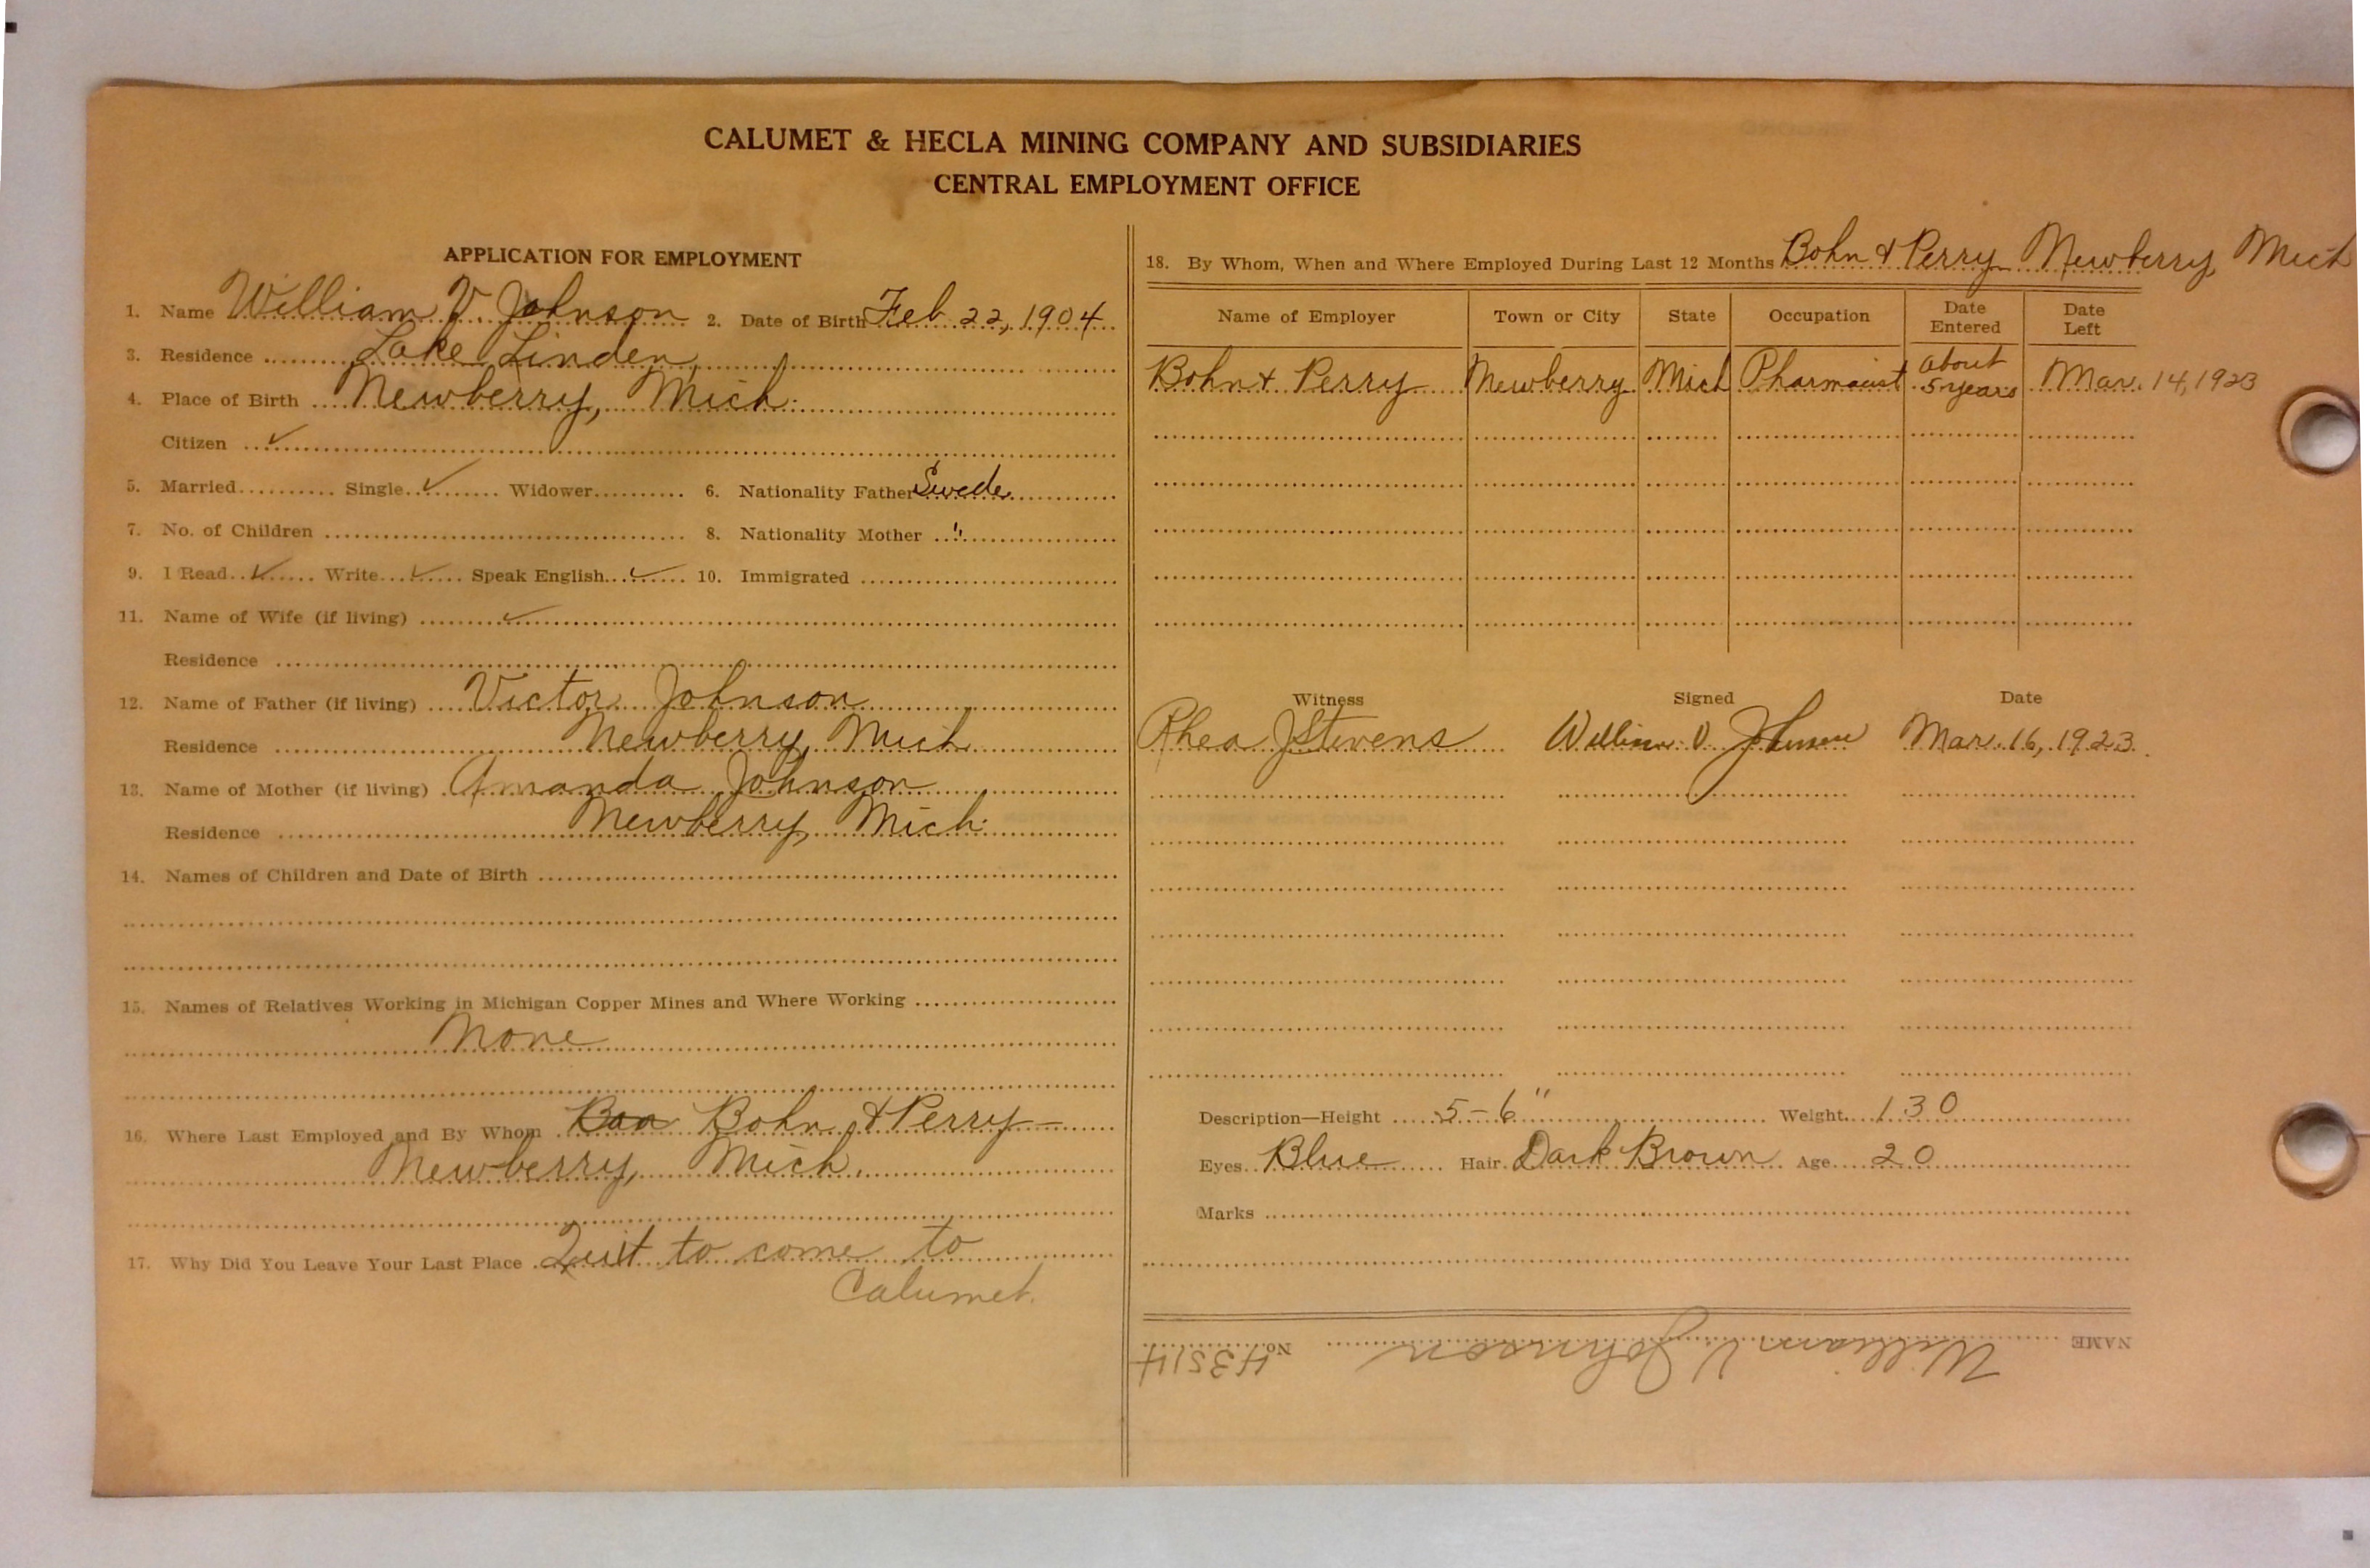 CALUMET & HECLA MINING COMPANY AND SUBSIDIARIES
CENTRAL EMPLOYMENT OFFICE
APPLICATION FOR EMPLOYMENT
1. Name William V. Johnson 2. Date of Birth Feb 22, 1904
3. Residence Lake Linden,
4. Place of Birth Newberry, Mich.
Citizen ✓
5. Married Single ✓ Widower 6. Nationality Father Swede
7. No. of Children 8. Nationality Mother "
9. I Read ✓ Write ✓ Speak English ✓ 10. Immigrated
11. Name of Wife (if living) ✓
Residence
12. Name of Father (if living) Victor Johnson
Residence Newberry, Mich
13. Name of Mother (if living) Amanda Johnson
Residence Newberry, Mich.
14. Names of Children and Date of Birth
15. Names of Relatives Working in Michigan Copper Mines and Where Working
None
16. Where Last Employed and By Whom Bohn & Perry
Newberry, Mich.
17. Why Did You Leave Your Last Place Quit to come to
Calumet.
18. By Whom, When and Where Employed During Last 12 Months Bohn & Perry Newberry, Mich
Name of Employer Town or City State Occupation Date Entered Date Left
Bohn & Perry Newberry Mich Pharmacist about 5 years Mar. 14, 1923
Witness Signed Date
Rhea J Stevens William V. Johnson Mar. 16, 1923.
Description—Height 5-6" Weight 130
Eyes Blue Hair Dark Brown Age 20
Marks
NAME William V. Johnson No. H3514